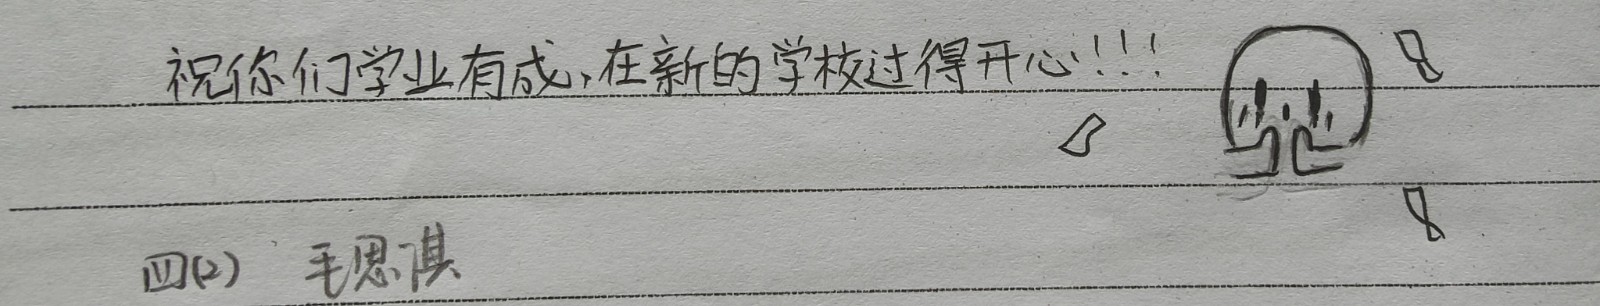 祝你们学业有成,在新的学校过得开心!!!
四(2) 毛思淇